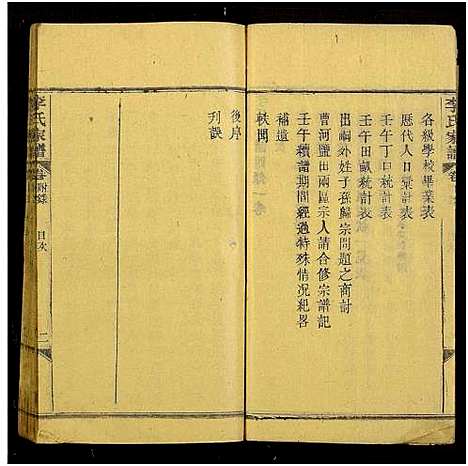 李氏家譜
各級學校畢業表
歷代人口彙計表
壬午丁口統計表
壬午田畝統計表
出嗣外姓子孫歸宗問題之商討
曹河鹽田兩區宗人請合修宗譜記
壬午續譜期間經過特殊情況紀畧
補遺
軼聞
後序
刋誤
李氏家譜
卷
附錄
目次
二